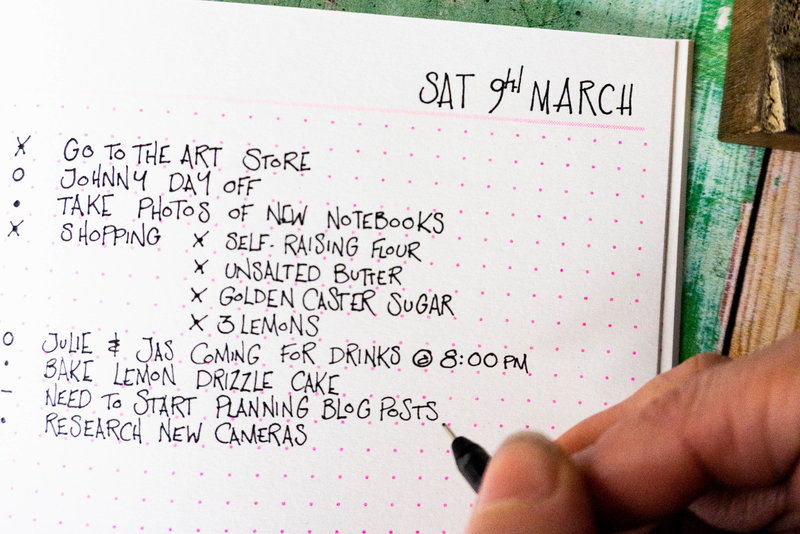 SAT 9TH MARCH
X GO TO THE ART STORE
O JOHNNY DAY OFF
• TAKE PHOTOS OF NEW NOTEBOOKS
X SHOPPING X SELF-RAISING FLOUR
X UNSALTED BUTTER
X GOLDEN CASTER SUGAR
X 3 LEMONS
O JULIE & JAS COMING FOR DRINKS @ 8:00PM
• BAKE LEMON DRIZZLE CAKE
– NEED TO START PLANNING BLOG POSTS
• RESEARCH NEW CAMERAS